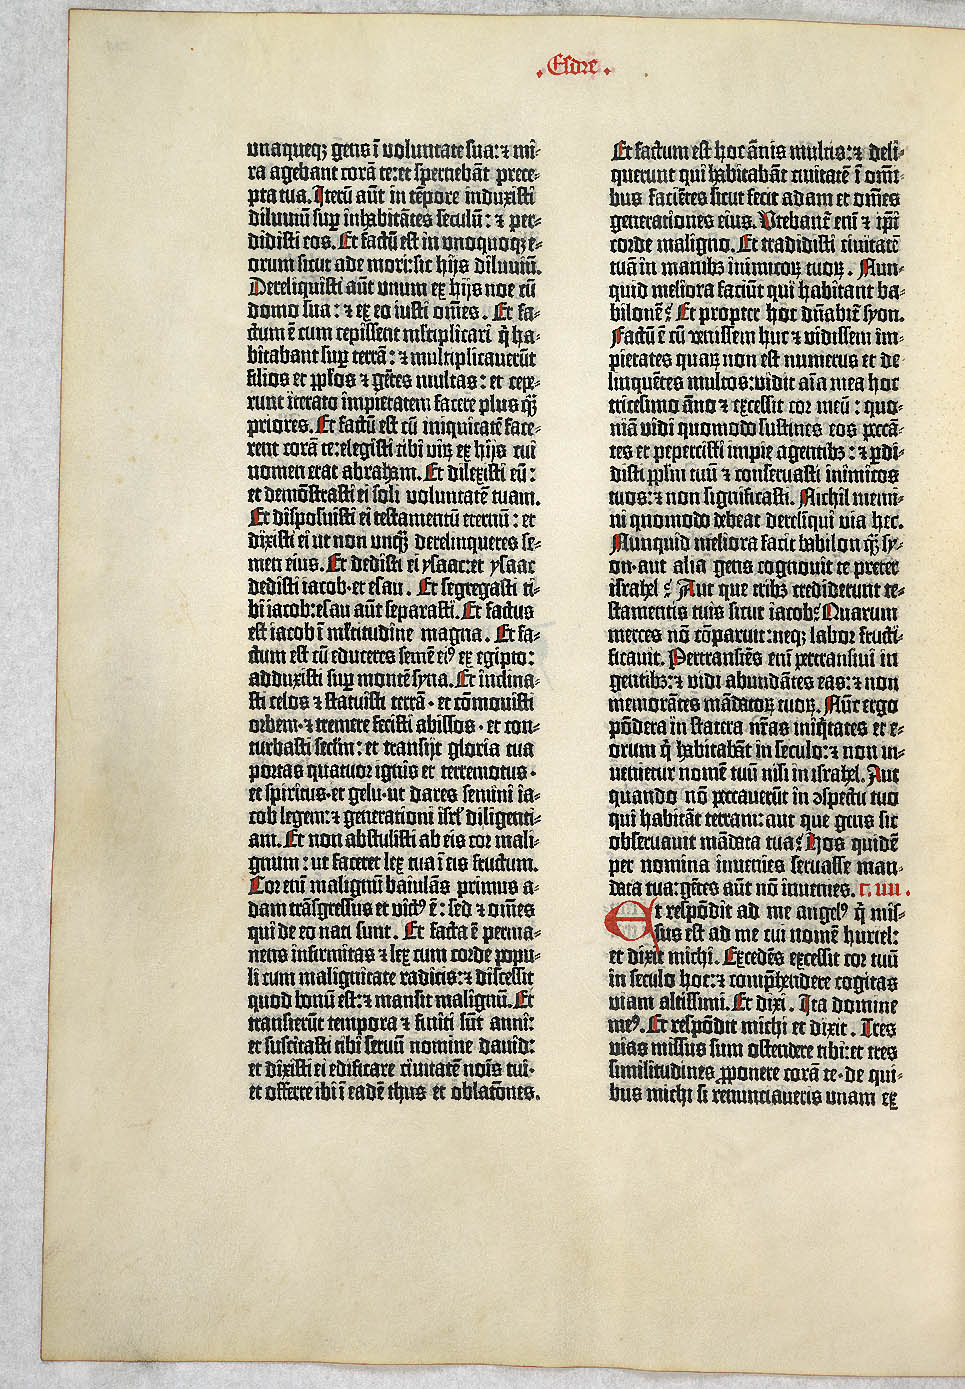 .Esdre.
vnaqueqꝫ gens ī voluntate sua: ⁊ mi-
ra agebant corā te: et spernebāt prece-
pta tua. Iterū aūt in tēpore induxisti
diluuiū sup̄ inhabitātes seculū: ⁊ per-
didisti eos. Et factū est in vnoquoqꝫ e-
orum sicut ade mori: sic hijs diluuiū.
Dereliquisti aūt vnum ex hijs noe cū
domo sua: ⁊ ex eo iusti om̄es. Et fa-
ctum ē cum cepissent ml̄tiplicari q̄ ha-
bitabant sup̄ terrā: ⁊ multiplicauerūt
filios et pp̄los ⁊ gētes multas: et cepe-
runt iterato impietatem facere plus qꝫ̄
priores. Et factū est cū iniquitatē face-
rent corā te: elegisti tibi virū ex hijs cui
nomen erat abraham. Et dilexisti eū:
et demōstrasti ei soli voluntatē tuam.
Et disposuisti ei testamentū eternū: et
dixisti ei ut non unqꝫ̄ derelinqueres se-
men eius. Et dedisti ei ysaac: et ysaac
dedisti iacob · et esau. Et segregasti ti-
bi iacob: esau aūt separasti. Et factus
est iacob ī ml̄titudine magna. Et fa-
ctum est cū educeres semē eiꝰ ex egipto:
adduxisti sup̄ montē syna. Et inclina-
sti celos ⁊ statuisti terrā · et cōmouisti
orbem · ⁊ tremere fecisti abissos · et con-
turbasti secl̄m: et transijt gloria tua
portas quatuor ignis et terremotus ·
et spiritus · et gelu · ut dares semini ia-
cob legem: ⁊ generationi isrl̄ diligenti-
am. Et non abstulisti ab eis cor mali-
gnum: ut faceret lex tua ī eis fructum.
Cor eni malignū baiulās primus a-
dam trāsgressus et victꝰ ē: sed ⁊ om̄es
qui de eo nati sunt. Et facta ē perma-
nens infirmitas ⁊ lex cum corde popu-
li cum malignitate radicis: ⁊ discessit
quod bonū est: ⁊ mansit malignū. Et
transierūt tempora ⁊ finiti sūt anni:
et suscitasti tibi seruū nomine dauid:
et dixisti ei edificare ciuitatē nois tui ·
et offerre ibi ī eadē thus et oblatōnes.
Et factum est hoc ānis multis: ⁊ deli-
querunt qui habitabāt ciuitatē ī omī-
bus faciētes sicut fecit adam et om̄es
generationes eius. Vtebant᷑ eni ⁊ ip̄i
corde maligno. Et tradidisti ciuitatē
tuā in manibꝫ inimicoꝝ tuoꝝ. Nun-
quid meliora faciūt qui habitant ba-
bilonē? Et propter hoc dn̄abit᷑ syon.
Factū ē cū venissem huc ⁊ vidissem im-
pietates quaꝝ non est numerus et de
linquētes multos: vidit aīa mea hoc
tricesimo āno ⁊ excessit cor meū: quo-
niā vidi quomodo sustines eos peccā-
tes et pepercisti impie agentibꝫ: ⁊ ꝑdi-
disti pp̄lm tuū ⁊ conseruasti inimicos
tuos: ⁊ non significasti. Nichil memi-
ni quomodo debeat derelinqui via hec.
Nunquid meliora facit babilon qꝫ̄ sy-
on · aut alia gens cognouit te preter
israhel? Aut que tribꝫ crediderunt te-
stamentis tuis sicut iacob? Quarum
merces nō cōparuit: neqꝫ labor fructi-
ficauit. Pertransiēs eni pertransiui in
gentibꝫ: ⁊ vidi abundātes eas: ⁊ non
memorātes mādatoꝝ tuoꝝ. Nūc ergo
pōdera in statera nr̄as iniq̄tates et e-
orum q̄ habitabāt in seculo: ⁊ non in-
uenietur nomē tuū nisi in israhel. Aut
quando nō peccauerūt in ɔspectu tuo
qui habitāt terram: aut que gens sic
obseruauit mādata tua? Hos quidē
per nomina inuenies seruasse man-
data tua: gētes aūt nō inuenies. c. iiii.
Et respōdit ad me angelꝰ q̄ mis-
sus est ad me cui nomē huriel:
et dixit michi. Excedēs excessit cor tuū
in seculo hoc: ⁊ comp̄hendere cogitas
viam altissimi. Et dixi. Ita domine
meꝰ. Et respōdit michi et dixit. Tres
vias missus sum ostendere tibi: et tres
similitudines ꝓponere corā te · de qui-
bus michi si renunciaueris unam ex